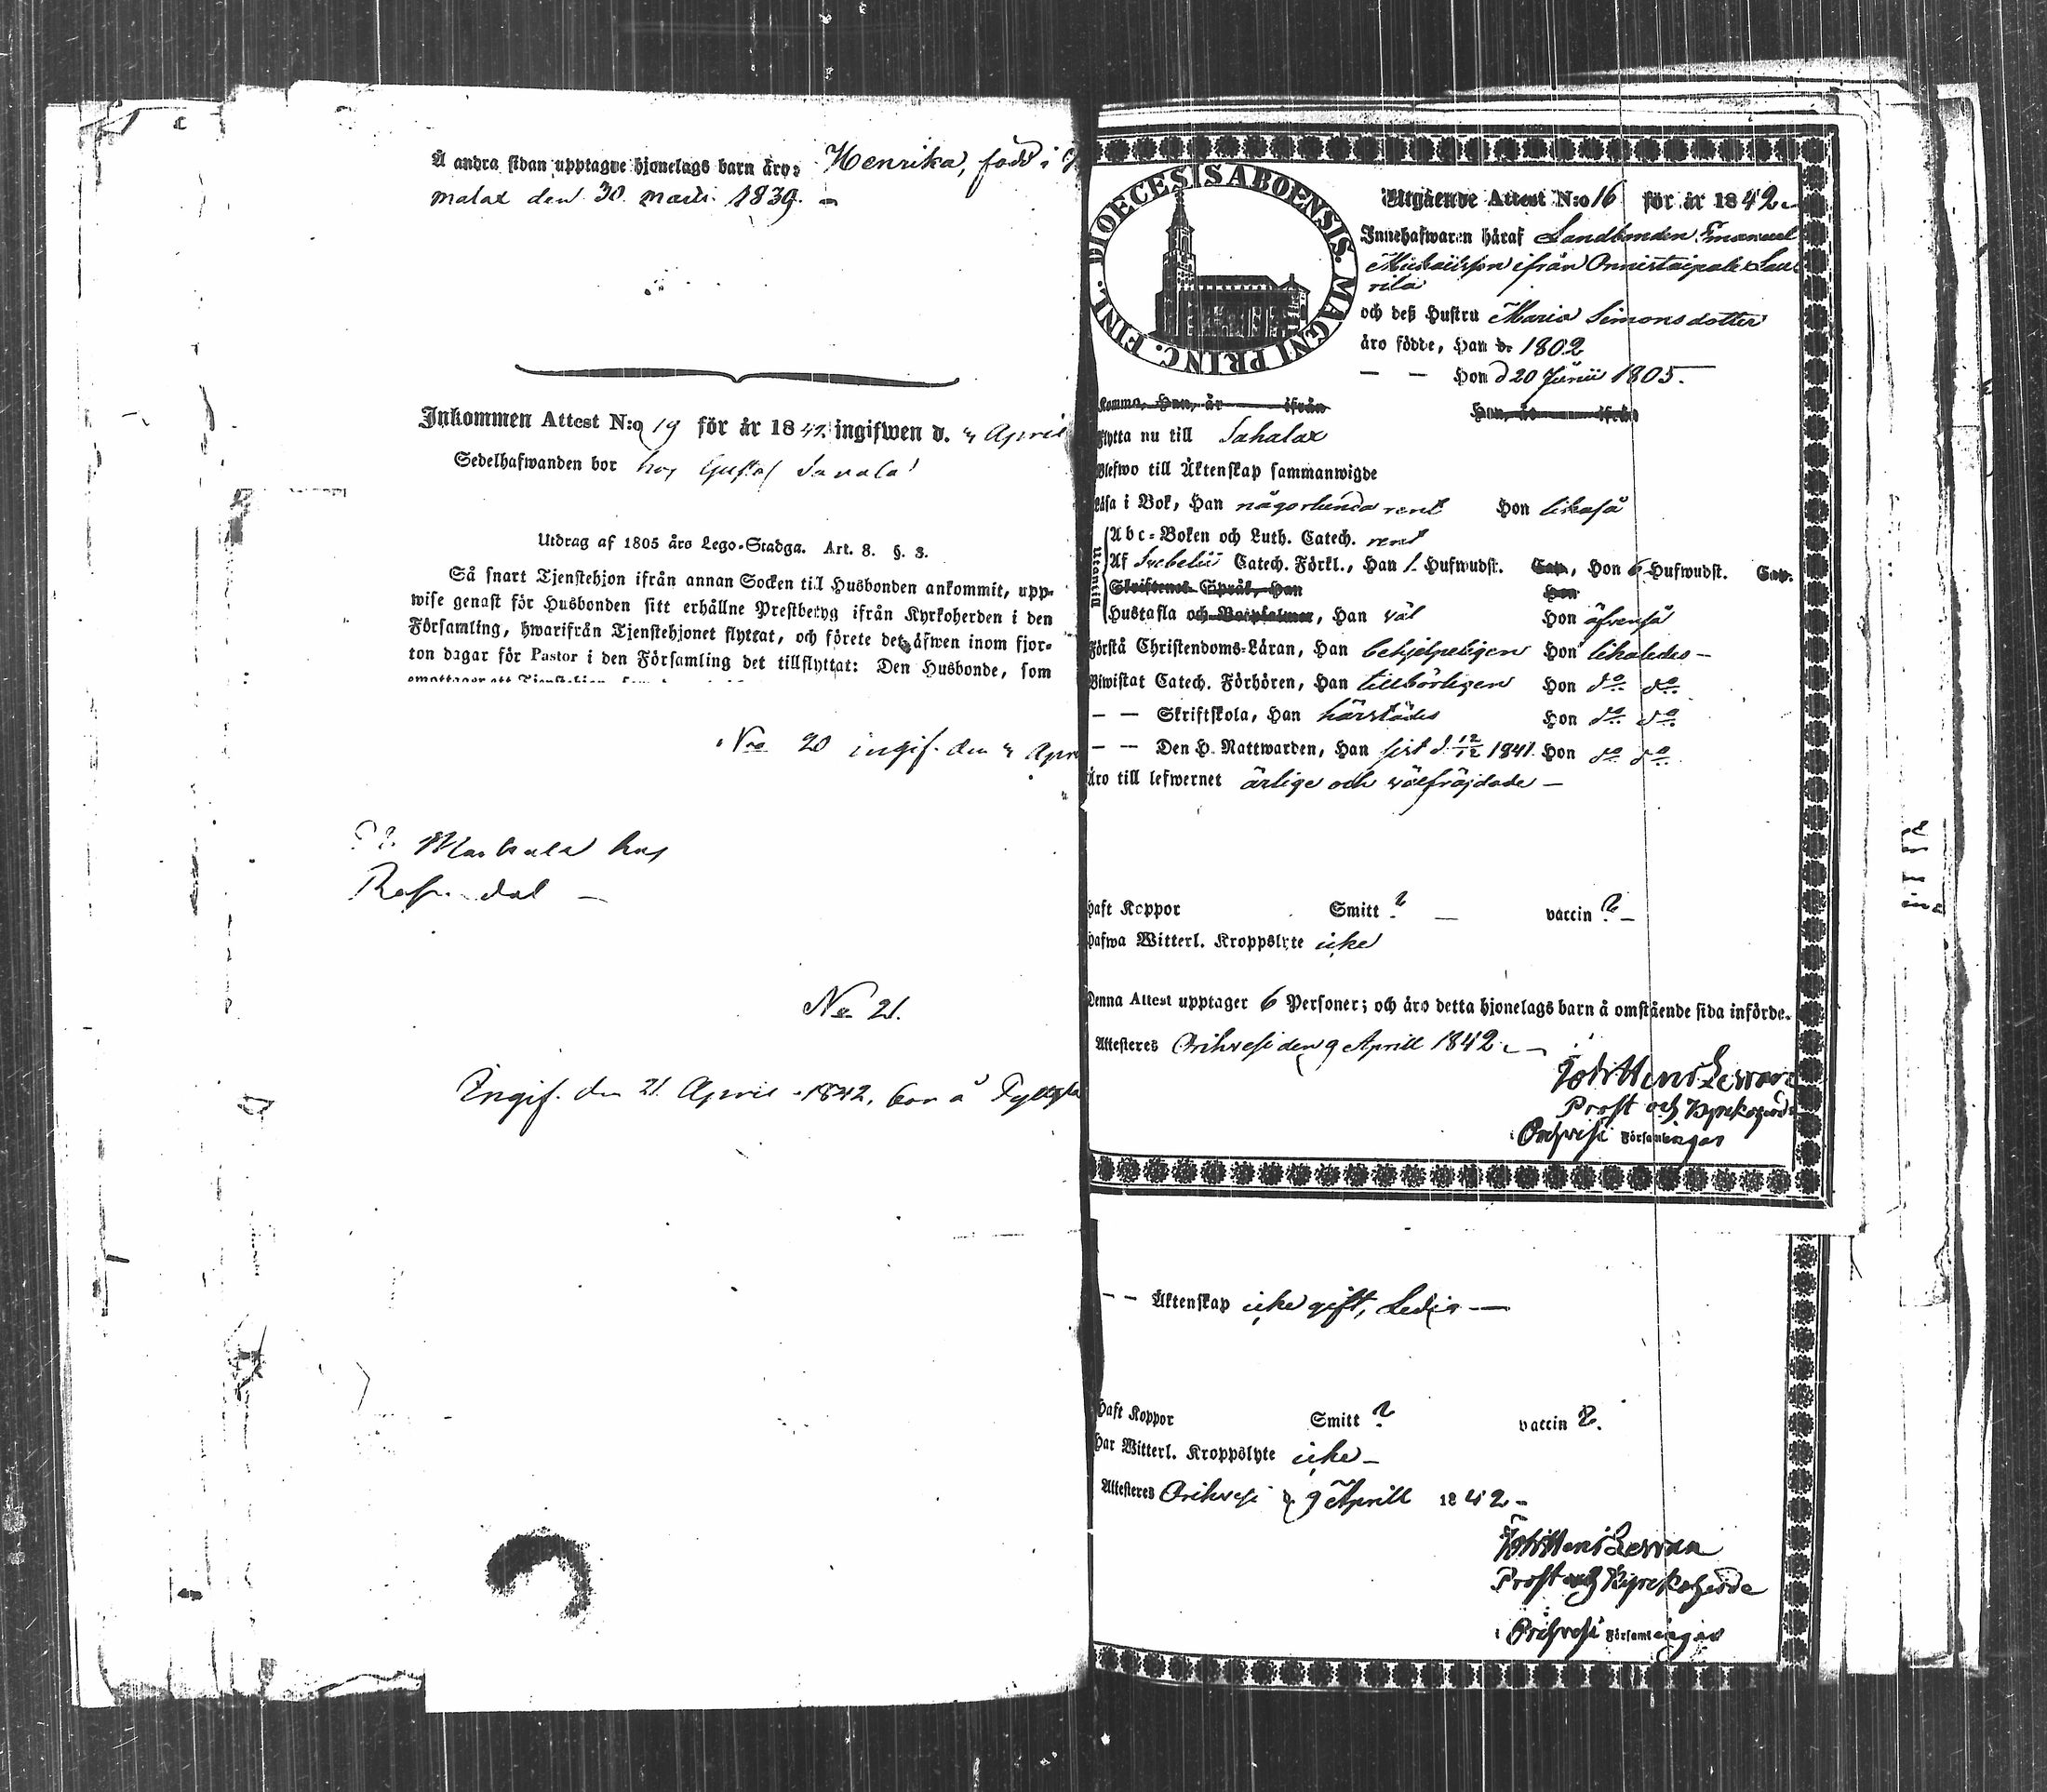 Å andra sidan upptagne hjonelags barn äro: Henrika, född i
malax den 30 martii 1839.
Inkommen Attest N:o 19 för år 1842. ingifwen d. 4 April
Sedelhafwanden bor hos Gustaf
Utdrag af 1805 års Lego-Stadga. Art. 8. §. 3.
Så snart Tjenstehjon ifrån annan Socken till Husbonden ankommit, upp-
wise genast för Husbonden sitt erhållne Prestbetyg ifrån Kyrkoherden i den
Församling, hwarifrån Tjenstehjonet flyttat, och förete det äfwen inom fjor-
ton dagar för Pastor i den Församling det tillflyttat: Den Husbonde, som
emottager ett Tjenstehjon,
No 20 ingif. den 4 Apri
hos
No 21.
Ingif. den 21 April 1842, bor å
DIOECESIS ABOENSIS. MAGNI PRINC. FINL.
Utgående Attest N:o 16 för år 1842
Innehafwaren häraf Landbonden Emanuel
Michaelsson ifrån Onnistaipale Lau
rila
och deß Hustru Maria Simonsdotter
äro födde, Han d. 1802
— — Hon d 20 Junii 1805.
Komma, Han, år ifrån Hon, år ifrån
flytta nu till Sahalax
Blefwo till Äktenskap sammanwigde
Läsa i Bok, Han någorlunda rent Hon likaså
Utantill
Abc-Boken och Luth. Catech. rent
Af Svebelii Catech. Förkl., Han 1. Hufwudst. Cap., Hon 6 Hufwudst. Cap.
Skriftenes Språk, Han Hon
Hustafla och Botpsalmer, Han väl Hon äfvenså
Förstå Christendoms-Läran, Han behjelpeligen Hon likaledes —
Biwistat Catech. Förhören, Han tillbörligen Hon do do
— — Skriftskola, Han härstädes Hon do do
— — Den H. Nattwarden, Han sist d. 12/12 1841. Hon do do
Äro till lefwernet ärlige och välfräjdade —
Haft Koppor Smitt ? — vaccin ? —
Hafwa Witterl. Kroppslyte icke
Denna Attest upptager 6 Personer; och äro detta hjonelags barn å omstående sida införde.
Attesteres Orihvesi den 9 Aprill 1842
Prost och Kyrkoherde
i Orihvesi Församlingar
— — Äktenskap icke gift, Ledig —
Haft Koppor Smitt ? vaccin ?
Har Witterl. Kroppslyte icke —
Attesteres Orihvesi d 9 Aprill 1842 —
Prost och Kyrkoherde
i Orihvesi Församlingar